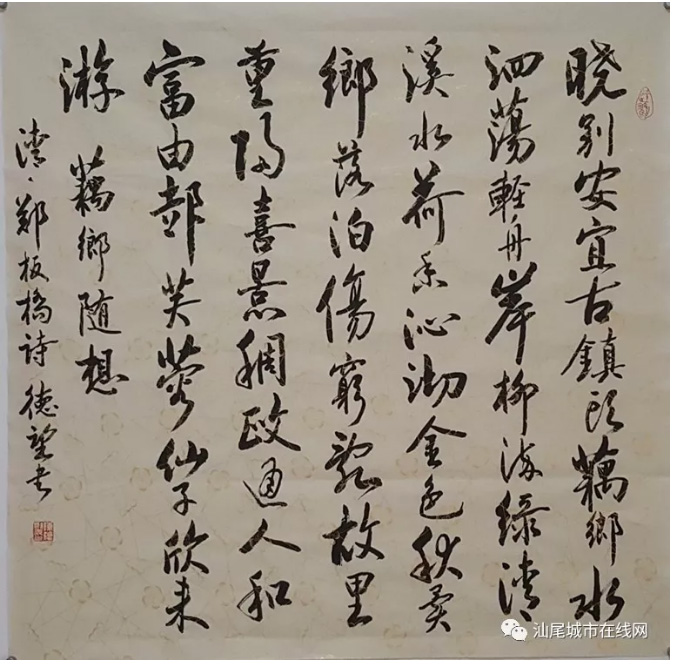 晓别安宜古镇头藕鄉水
泗蕩輕舟岸柳绿清
溪水荷香沁沏金色秋異
鄉落泊傷窮貌故里
重归喜景稠政通人和
富由芙蓉仙子欣来
游 藕鄉随想
清、郑板橋诗 德望书
汕尾城市在线网